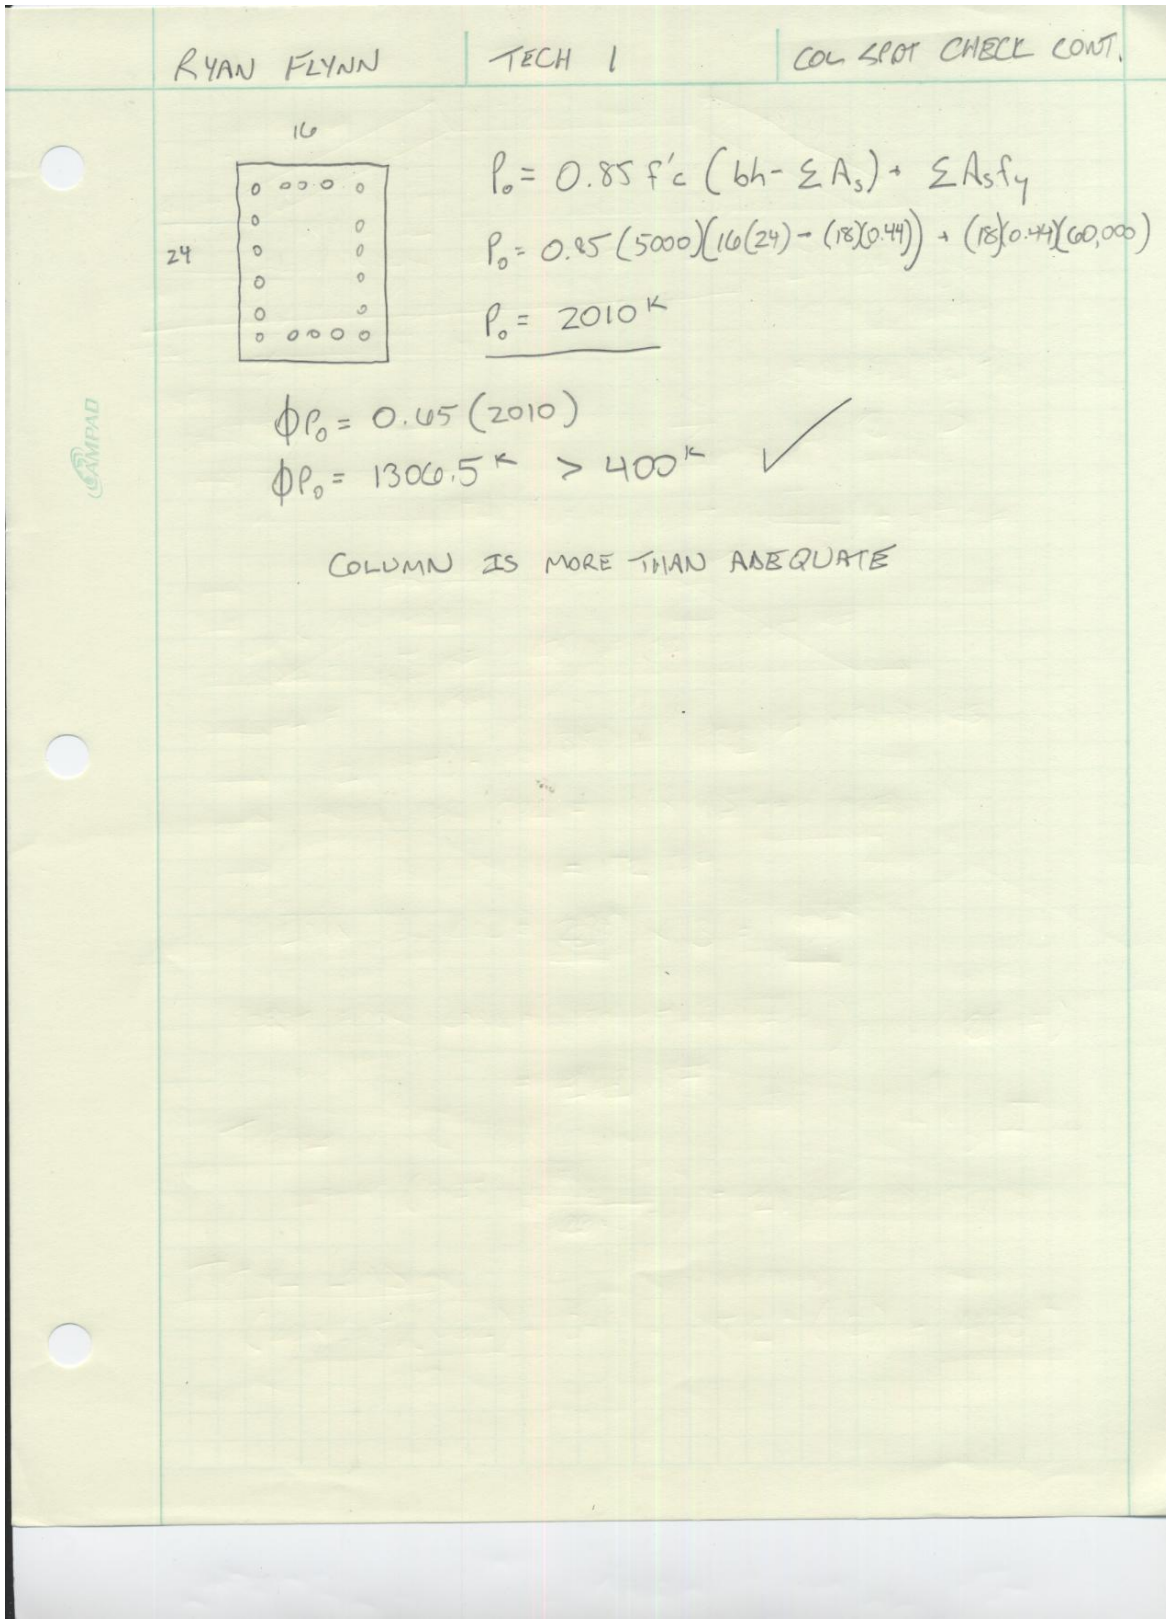 RYAN FLYNN TECH 1 COL SPOT CHECK CONT.
16
24
P₀ = 0.85 f'c (bh - ΣAₛ) + ΣAₛfy
P₀ = 0.85 (5000)(16(24) - (18)(0.44)) + (18)(0.44)(60,000)
P₀ = 2010ᴷ
ϕP₀ = 0.65 (2010)
ϕP₀ = 1306.5ᴷ > 400ᴷ ✓
COLUMN IS MORE THAN ADEQUATE
CAMPAD